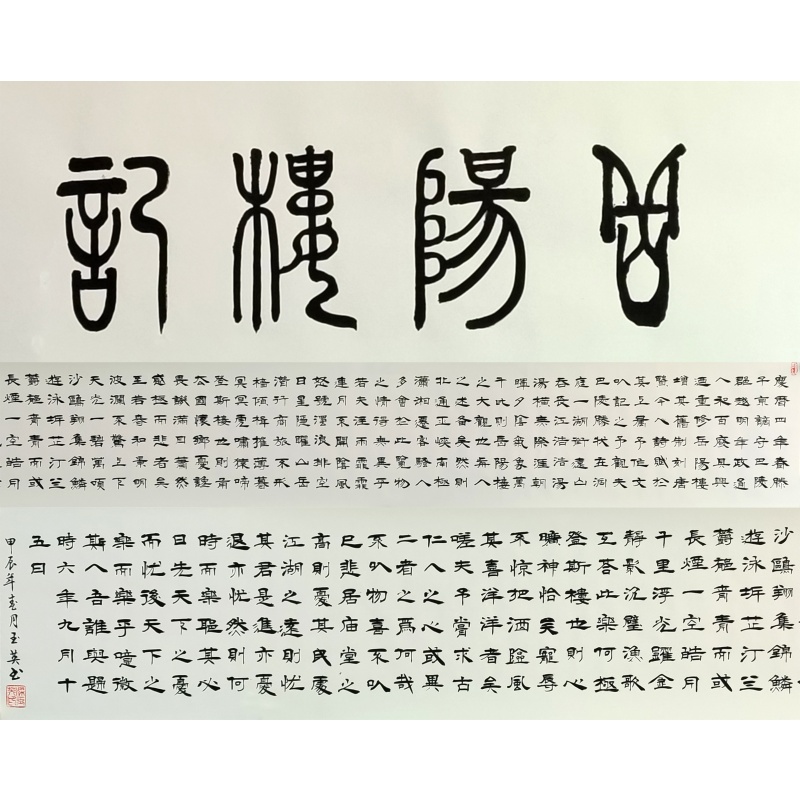 岳陽樓記
慶曆四年春滕
子京謫守巴陵
郡越明年政通
人和百廢具興
迺重修岳陽樓
增其舊制刻唐
賢今人詩賦於
其上屬予作文
以記之予觀夫
巴陵勝狀在洞
庭一湖銜遠山
吞長江浩浩湯
湯橫無際涯朝
暉夕陰氣象萬
千此則岳陽樓
之大觀也前人
之述备矣然則
北通巫峽南極
瀟湘遷客騷人
多會於此覽物
之情得無異乎
若夫淫雨霏霏
連月不開陰風
怒號濁浪排空
日星隱曜山岳
潛行商旅不形
檣傾楫摧薄暮
冥冥虎嘯猿啼
登斯樓也則有
去國懷鄉憂讒
畏譏滿目蕭然
感極而悲者矣
至若春和景明
波瀾不驚上下
天光一碧萬頃
沙鷗翔集錦鱗
遊泳岸芷汀兰
鬱郁青青而或
長煙一空皓月
沙鷗翔集錦鱗
遊泳岸芷汀兰
鬱郁青青而或
長煙一空皓月
千里浮光躍金
靜影沉璧漁歌
互答此樂何極
登斯樓也則心
曠神怡矣寵辱
不惊把酒臨風
其喜洋洋者矣
嗟夫予嘗求古
仁人之心或異
二者之為何哉
不以物喜不以
已悲居庙堂之
高則憂其民處
江湖之遠則忧
其君是進亦憂
退亦忧然則何
時而樂耶其必
曰先天下之憂
而忧後天下之
樂而樂乎噫微
斯人吾誰與歸
時六年九月十
五日
甲辰年春月玉英書